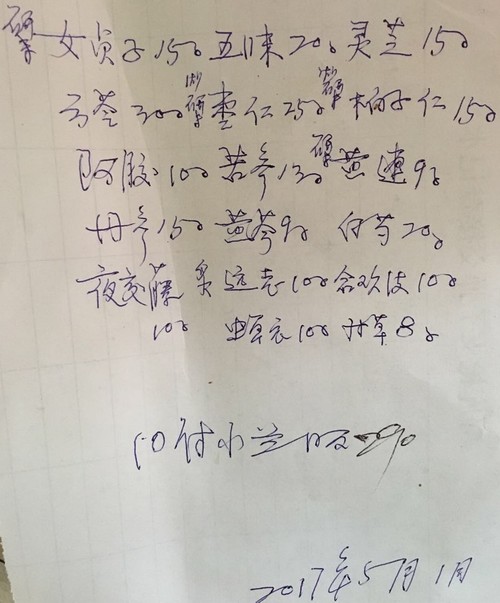 女贞子15g 五味20g 灵芝15g
云苓30g 枣仁25g 柏子仁15g
阿胶10g 苦参13g 黄連9g
丹参15g 黄芩9g 白芍20g
夜交藤 炙远志10g 合欢皮10g
10g 蝉衣10g 甘草8g
10付水
2017年5月1日